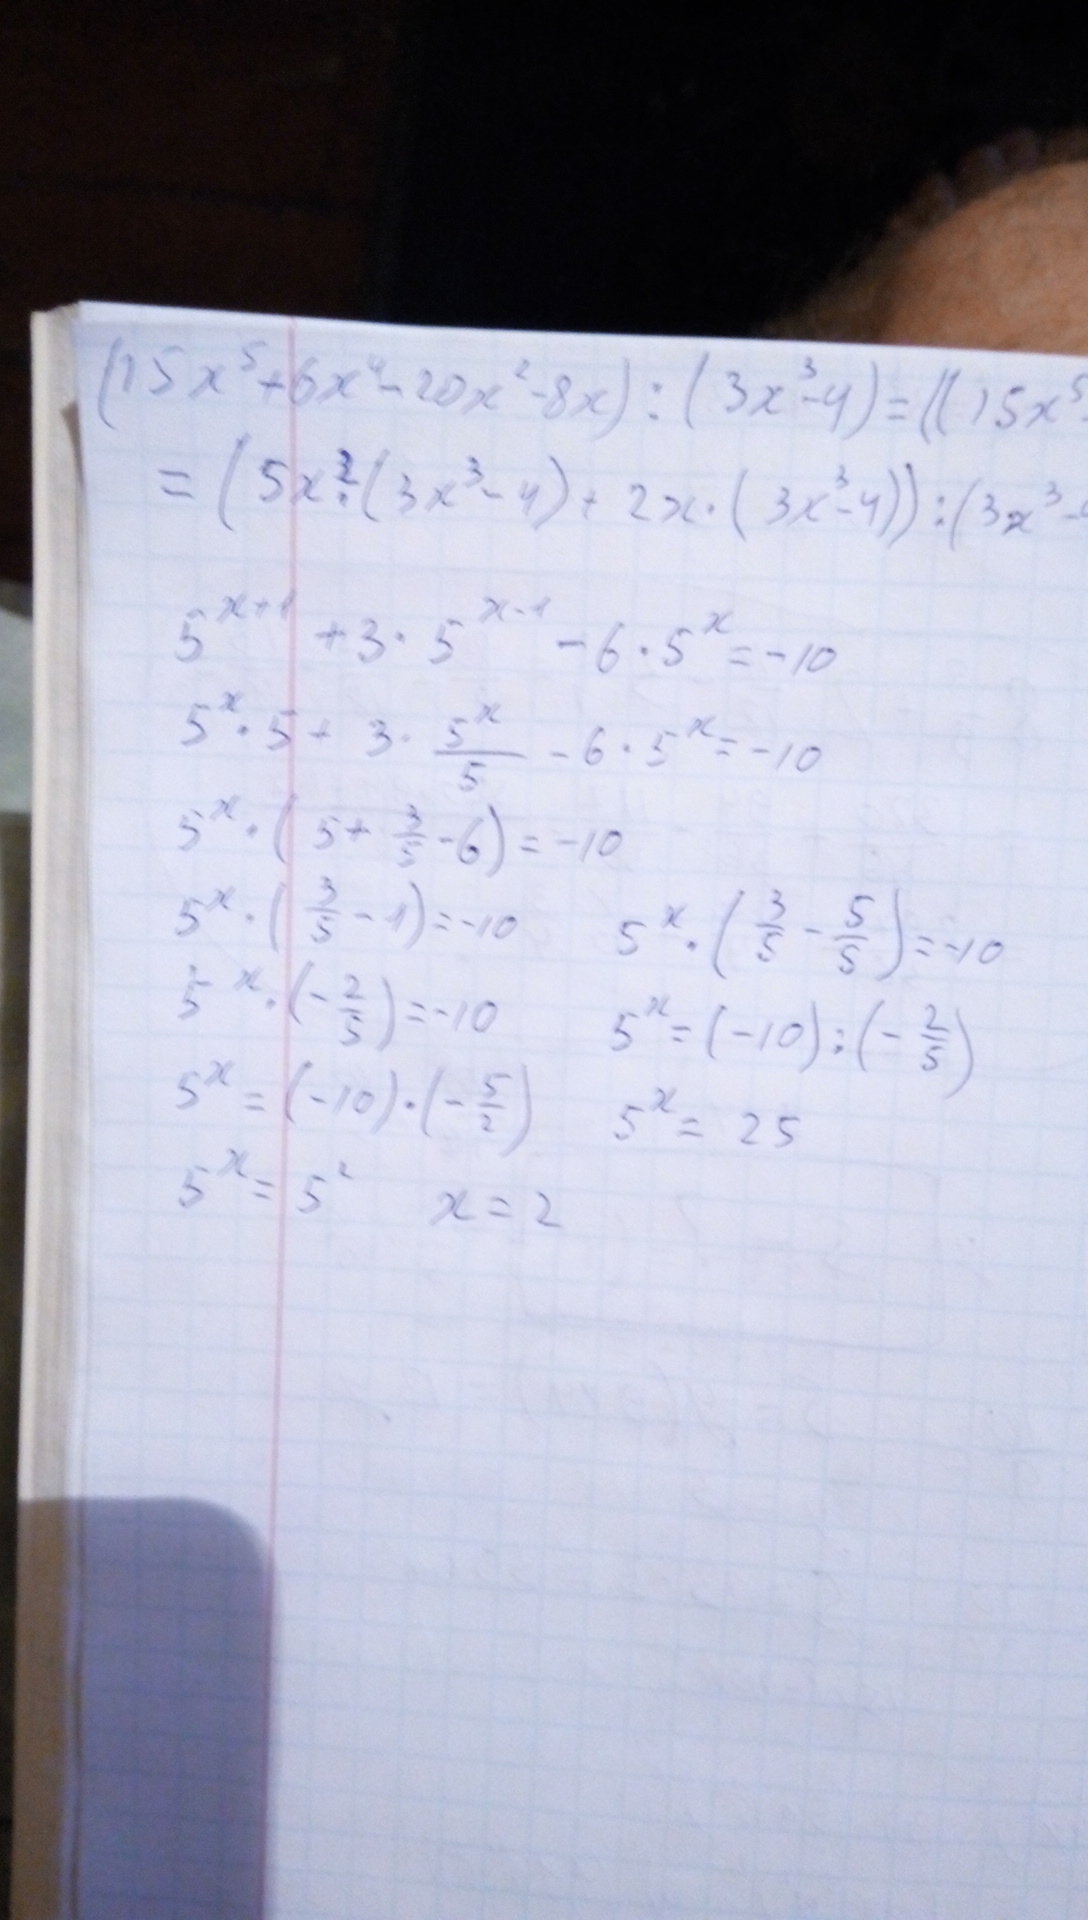 (15x⁵+6x⁴-20x²-8x):(3x³-4)=((15x⁵
=(5x²·(3x³-4)+2x·(3x³-4)):(3x³-
5^(x+1)+3·5^(x-1)-6·5^x=-10
5^x·5+3·5^x/5-6·5^x=-10
5^x·(5+3/5-6)=-10
5^x·(3/5-1)=-10 5^x·(3/5-5/5)=-10
5^x·(-2/5)=-10 5^x=(-10):(-2/5)
5^x=(-10)·(-5/2) 5^x=25
5^x=5² x=2